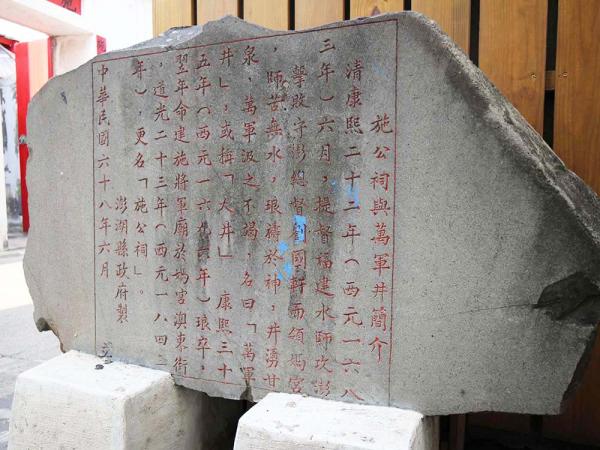 施公祠與萬軍井簡介
清康熙二十二年(西元一六八
三年)六月,提督福建水師攻澎
擊敗守澎總督劉國軒而領媽宮
,師苦無水,琅禱於神,井湧甘
泉,萬軍汲之不竭,名曰「萬軍
井」,或揖「大井」康熙三十
五年(西元一六九六年)琅卒,
翌年命建施將軍廟於媽宮澳東街
,道光二十三年(西元一八四三
年),更名「施公祠」。
澎湖縣政府製
中華民國六十八年六月